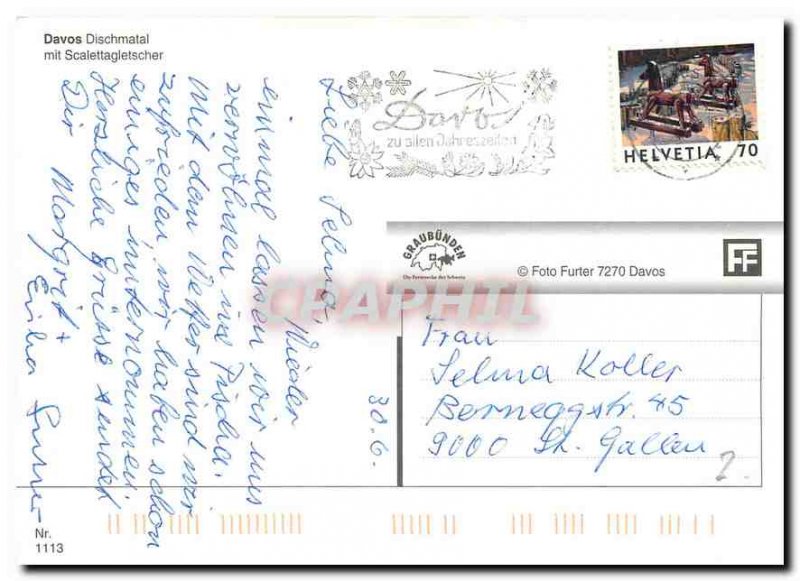 Davos Dischmatal
mit Scalettagletscher
Davos
zu allen Jahreszeiten
HELVETIA 70
GRAUBÜNDEN
Die Ferienecke der Schweiz
© Foto Furter 7270 Davos
FF
CPAPHIL
30.6.
Liebe Selma, Wieder
einmal lassen wir uns
verwöhnen im Pischa.
Mit dem Wetter sind wir
zufrieden wir haben schon
einiges unternommen.
Herzliche Grüsse sendet
Dir Margrit +
Frau
Selma Koller
Berneggstr. 45
9000 St. Gallen
2.
Nr.
1113